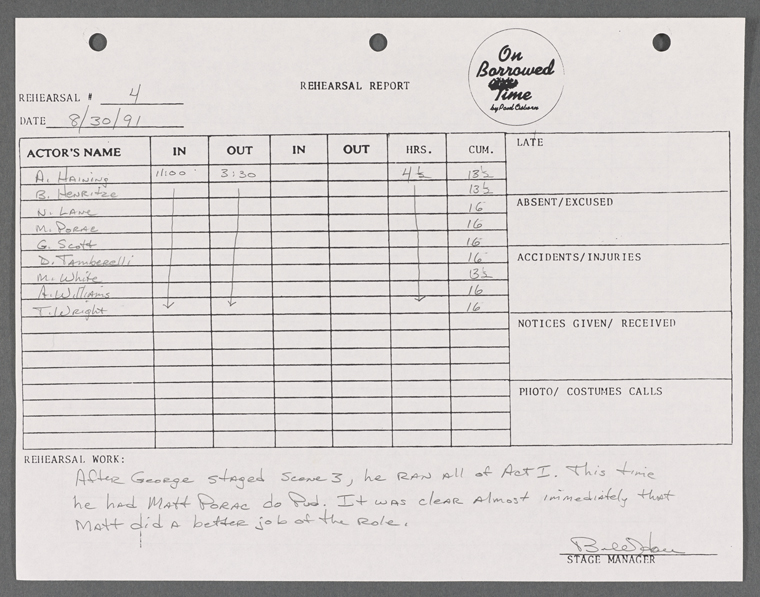 On
Borrowed
Time
by Paul Osborn
REHEARSAL REPORT
REHEARSAL # 4
DATE 8/30/91
ACTOR'S NAME IN OUT IN OUT HRS. CUM.
A. Haining 11:00 3:30 4½ 13½
B. Henritze 13½
N. Lane 16
M. Porac 16
G. Scott 16
D. Tamberelli 16
M. White 13½
A. Williams 16
T. Wright 16
LATE
ABSENT/EXCUSED
ACCIDENTS/INJURIES
NOTICES GIVEN/ RECEIVED
PHOTO/ COSTUMES CALLS
REHEARSAL WORK:
After George staged Scene 3, he ran all of Act I. This time
he had Matt Porac do Pud. It was clear almost immediately that
Matt did a better job of the role.
STAGE MANAGER